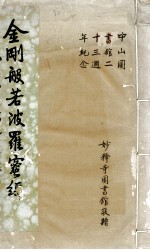 金剛般若波羅蜜經
中山圖
書館二
十三週
年紀念
妙釋寺圖書館敬贈